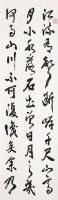 江流有聲斷岸千尺山高
月小水落石出曾日月之幾
何而江山不可復識矣予乃